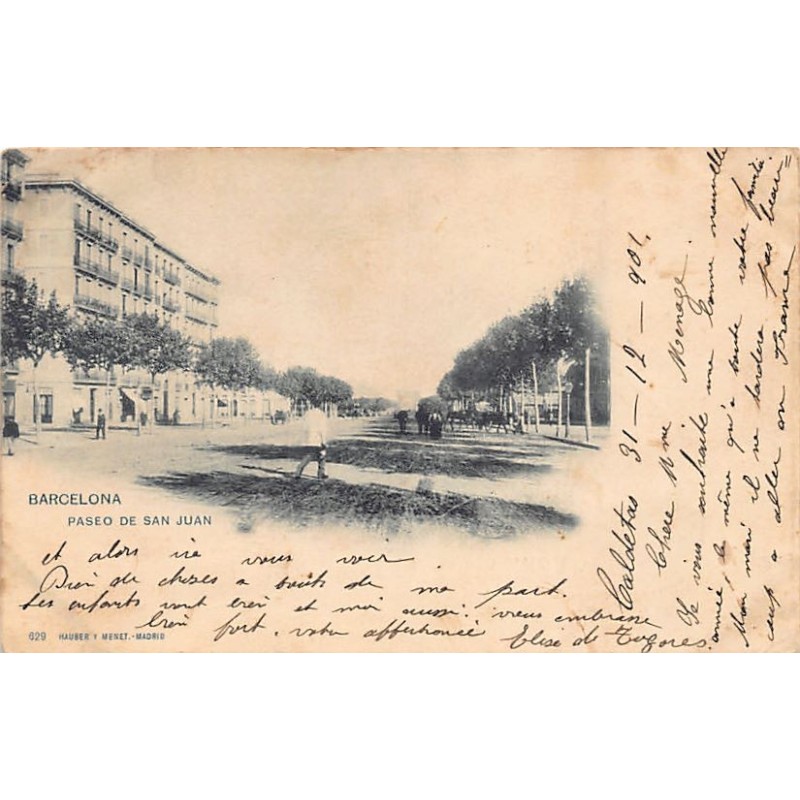 BARCELONA
PASEO DE SAN JUAN
629 HAUSER Y MENET.-MADRID
Caldetas 31-12-901.
Chere Mme Menage
Je vous souhaite une bonne nouvelle
année, le même qu'a toute votre famile
Mon mari il ne tardera pas beau=
cup a aller en France
et alors ira vous voir
Bien de choses a touts de ma part.
Les enfants vont bien et moi aussi. vous embrasse
bien fort. votre affectionée Elise de